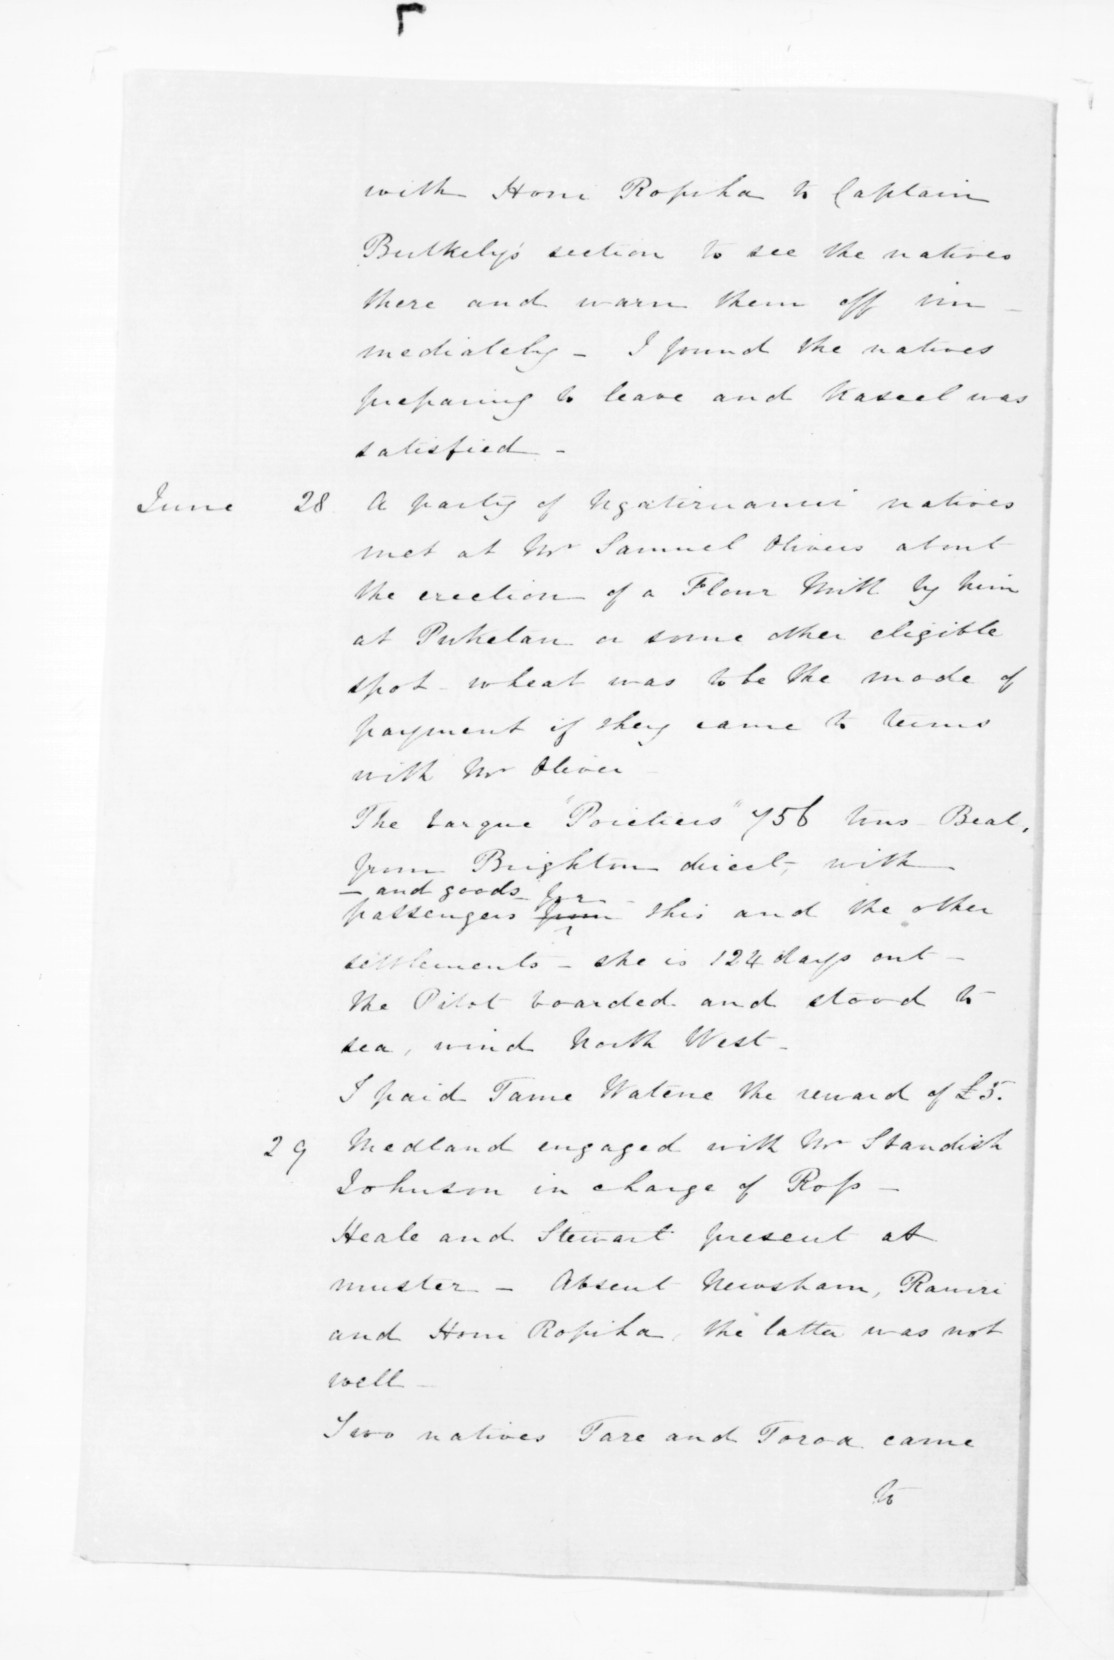 with Honi Ropiha to Captain
Bulkely's section to see the natives
there and warn them off im-
mediately - I found the natives
preparing to leave and was
satisfied -
June 28 A party of Ngatiruanui natives
met at Mr Samuel Olivers about
the erection of a Flour Mill by him
at Puketau or some other eligible
spot - wheat was to be the mode of
payment if they came to terms
with Mr Oliver -
The barque "Poictiers" 756 tons - Beal,
from Brighton direct, with
- and goods for -
passengers from this and the other
settlements - she is 124 days out -
the Pilot boarded and stood to
sea, wind North West -
I paid Tame Watene the reward of £5.
29 Medland engaged with Mr Standish
Johnson in charge of Ross -
Heale and Stewart present at
muster - Absent Newsham, Rawiri
and Honi Ropiha, the latter was not
well -
Two natives Tare and Toroa came
to